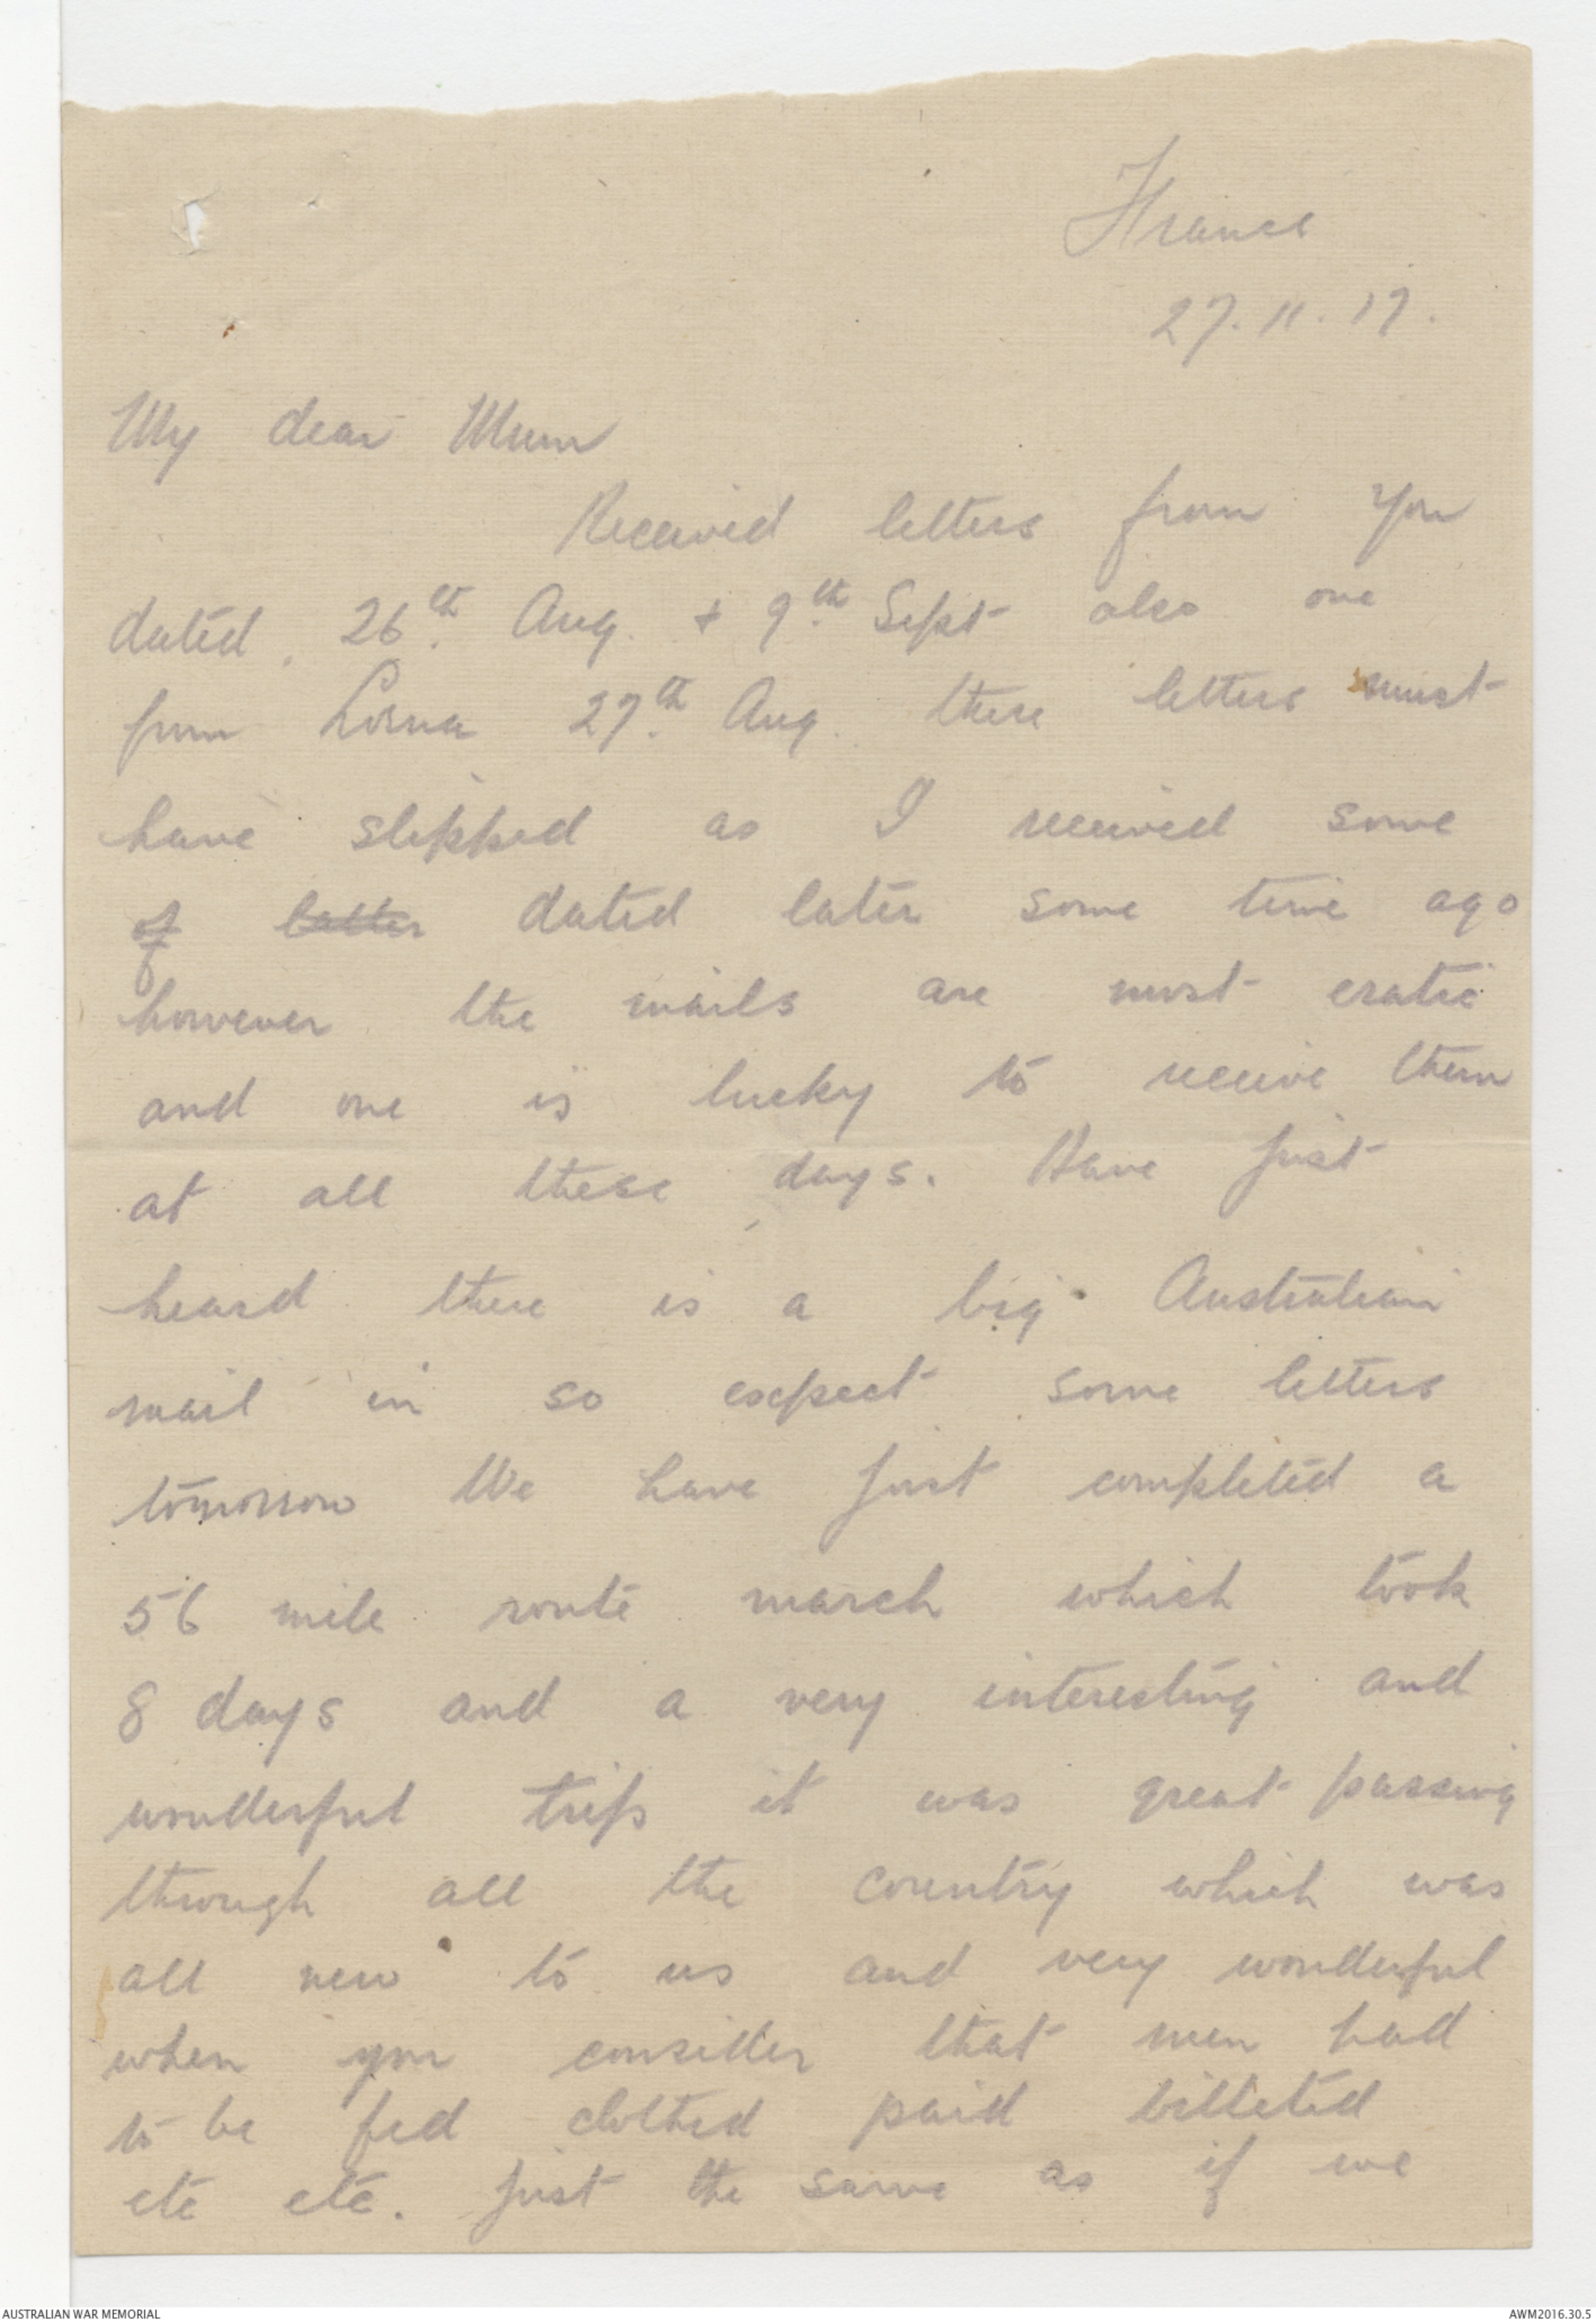 France
27.11.17.
My dear Mum
Received letters from you
dated. 26th Aug. + 9th Sept also one
from Lorna 27th Aug. these letters must
have slipped as I received some
of latter dated later some time ago
however the mails are most eratic
and one is lucky to receive them
at all these days. Have just
heard there is a big Australian
mail in so expect some letters
tomorrow We have just completed a
56 mile route march which took
8 days and a very interesting and
wonderful trip it was great passing
through all the country which was
all new to us and very wonderful
when you consider that men had
to be fed clothed paid billeted
etc etc. just the same as if we
AUSTRALIAN WAR MEMORIAL
AWM2016.30.5